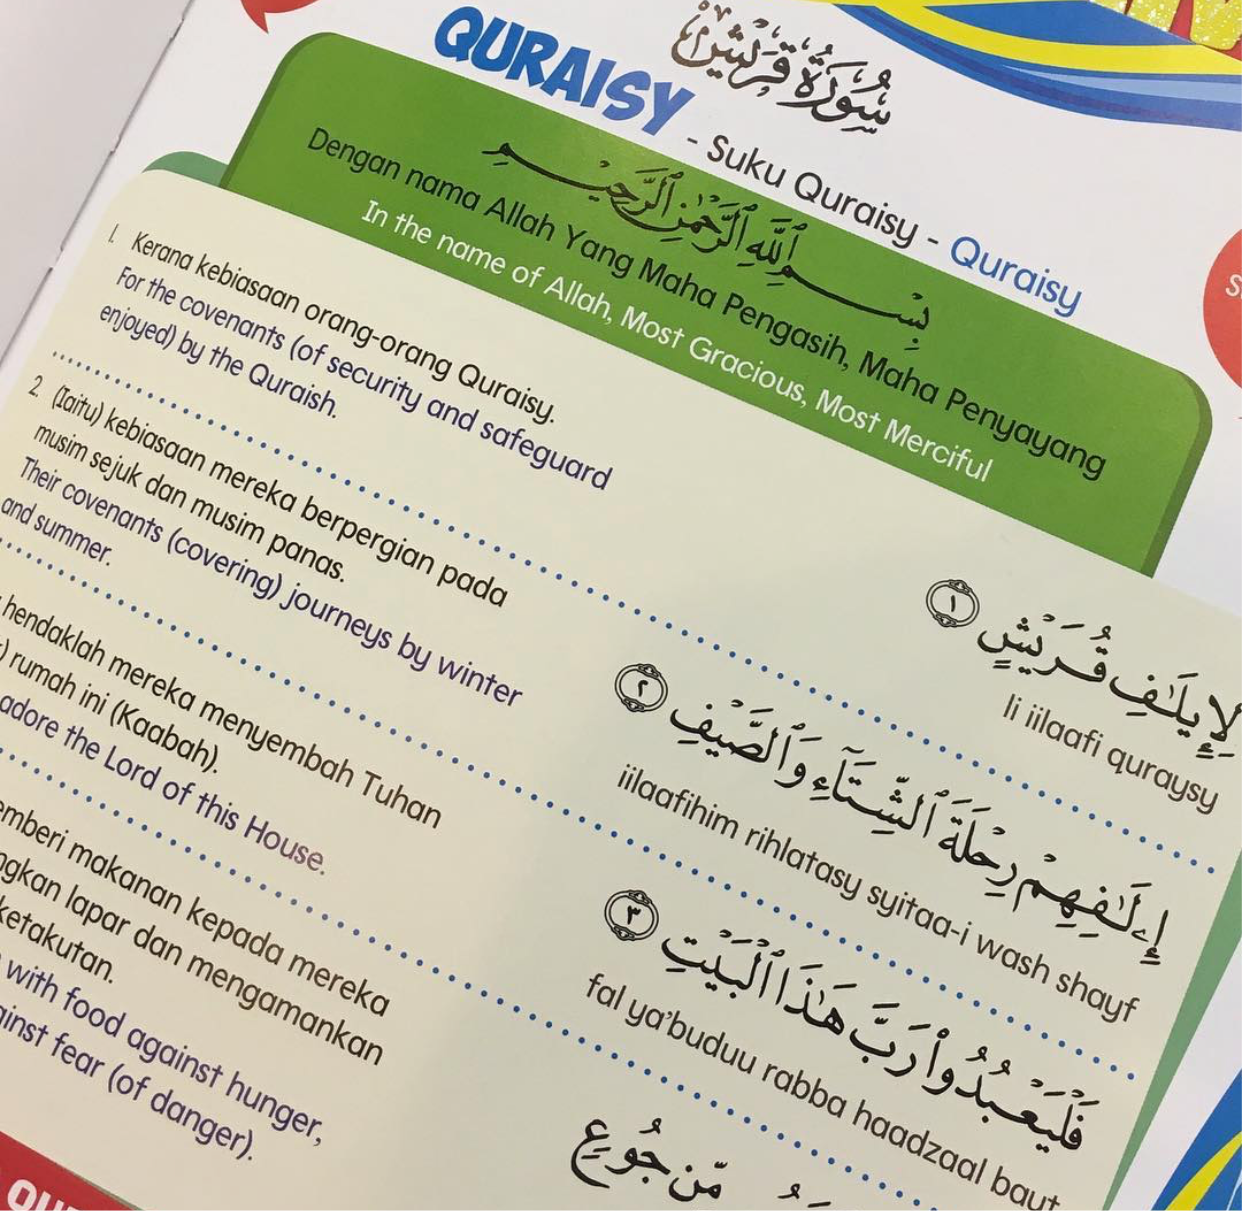 سُورَةُ قُرَيْشٍ
QURAISY - Suku Quraisy - Quraisy
بِسْمِ ٱللَّهِ ٱلرَّحْمَٰنِ ٱلرَّحِيمِ
Dengan nama Allah Yang Maha Pengasih, Maha Penyayang
In the name of Allah, Most Gracious, Most Merciful
1. Kerana kebiasaan orang-orang Quraisy.
For the covenants (of security and safeguard
enjoyed) by the Quraish.
لِإِيلَٰفِ قُرَيْشٍ ١
li iilaafi quraysy
2. (Iaitu) kebiasaan mereka berpergian pada
musim sejuk dan musim panas.
Their covenants (covering) journeys by winter
and summer.
إِۦلَٰفِهِمْ رِحْلَةَ ٱلشِّتَآءِ وَٱلصَّيْفِ ٢
iilaafihim rihlatasy syitaa-i wash shayf
hendaklah mereka menyembah Tuhan
) rumah ini (Kaabah).
adore the Lord of this House.
فَلْيَعْبُدُوا۟ رَبَّ هَٰذَا ٱلْبَيْتِ ٣
fal ya'buduu rabba haadzaal baut
emberi makanan kepada mereka
ngkan lapar dan mengamankan
ketakutan.
with food against hunger,
ainst fear (of danger).
مِّن جُوعٍ